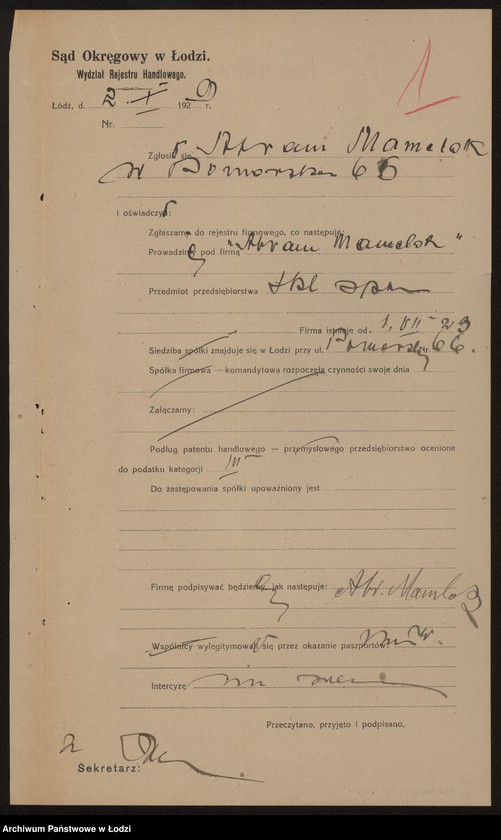 1
Sąd Okręgowy w Łodzi.
Wydział Rejestru Handlowego.
Łódź, d. 2. X 1929 r.
Nr.
Zgłosił się Abram Mamelok
w Pomorska 66
i oświadczył:
Zgłaszam do rejestru firmowego, co następuje:
Prowadzimy pod firmą "Abram Mamelok"
Przedmiot przedsiębiorstwa skl. spoż
Firma istnieje od. 1. VII - 29
Siedziba spółki znajduje się w Łodzi przy ul. Pomorskiej nr. 66.
Spółka firmowa — komandytowa rozpoczęła czynności swoje dnia
Załączamy:
Podług patentu handlowego — przemysłowego przedsiębiorstwo ocenione
do podatku kategorji III
Do zastępowania spółki upoważniony jest
Firmę podpisywać będziemy, jak następuje: Abr. Mamelok
Wspólnicy wylegitymował się przez okazanie paszportów:
Intercyzę nie
Przeczytano, przyjęto i podpisano.
Sekretarz:
Archiwum Państwowe w Łodzi